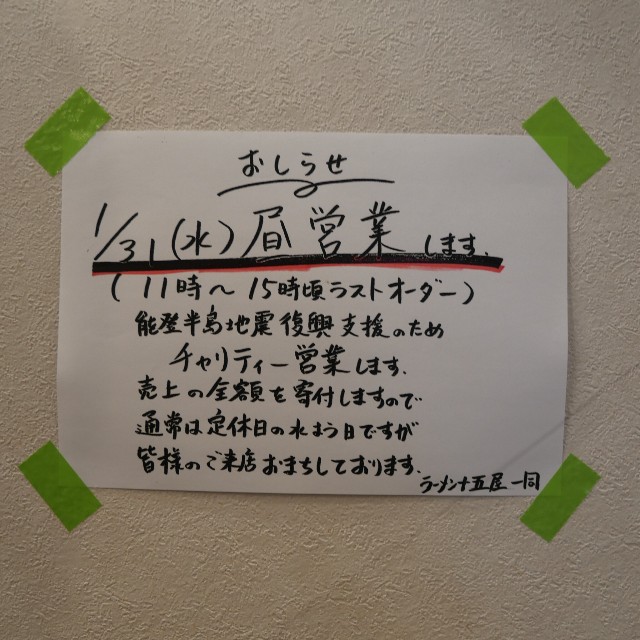 おしらせ
1/31(水)昼営業します。
(11時〜15時頃ラストオーダー)
能登半島地震復興支援のため
チャリティー営業します。
売上の全額を寄付しますので
通常は定休日の水よう日ですが
皆様のご来店おまちしております。
ラーメン十五屋一同